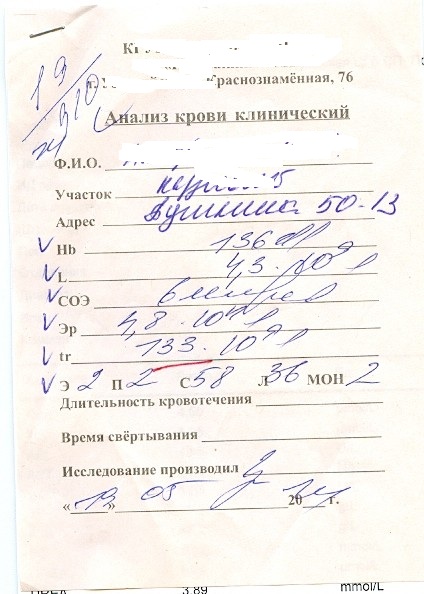 19/910
Краснознамённая, 76
Анализ крови клинический
Ф.И.О.
Участок 15
Адрес Пушкина 50-13
Hb 136 г/л
L 4,3 · 10⁹ л
СОЭ 6 мм/час
Эр 4,8 · 10¹² л
tr 133 · 10⁹ л
Э 2 П 2 С 58 Л 36 МОН 2
Длительность кровотечения
Время свёртывания
Исследование производил
«19» 05 2014 г.
3.89 mmol/L